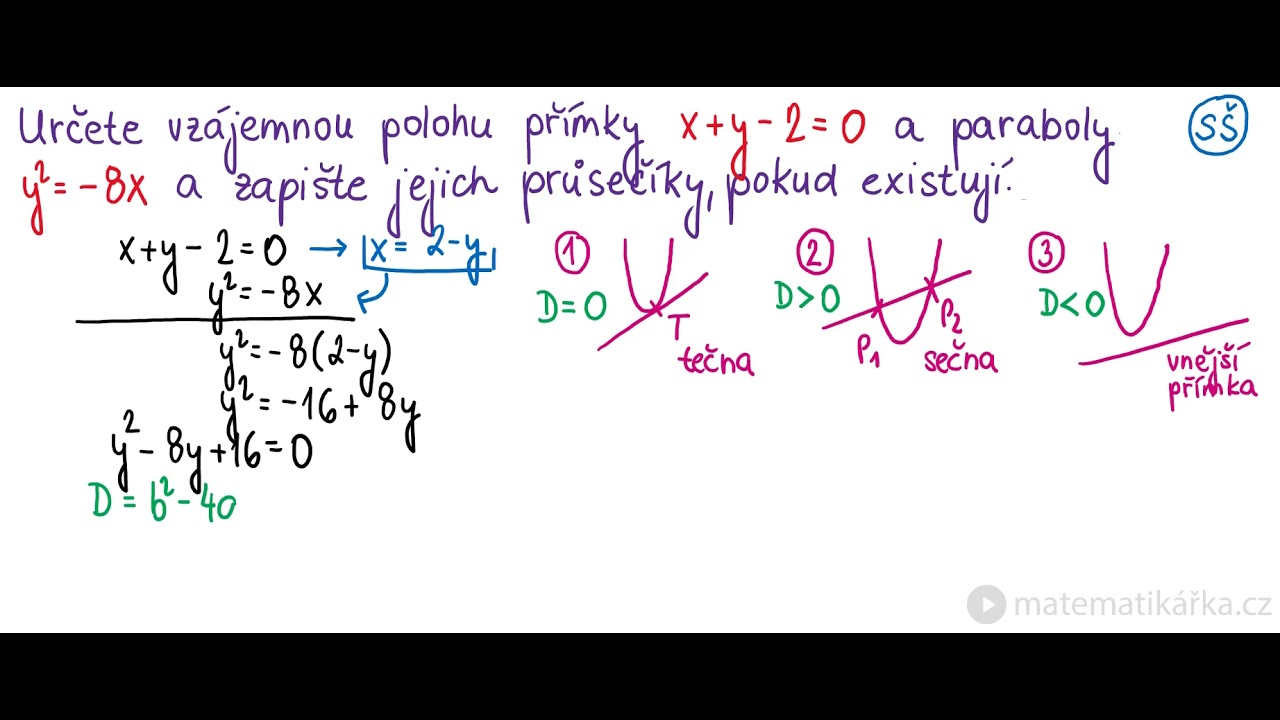 Určete vzájemnou polohu přímky x+y-2=0 a paraboly
SŠ
y²=-8x a zapište jejich průsečíky, pokud existují.
x+y-2=0 → x=2-y
y²=-8x
y²=-8(2-y)
y²=-16+8y
y²-8y+16=0
D=b²-4a
1
D=0
T
tečna
2
D>0
P₁
P₂
sečna
3
D<0
vnější
přímka
matematikářka.cz